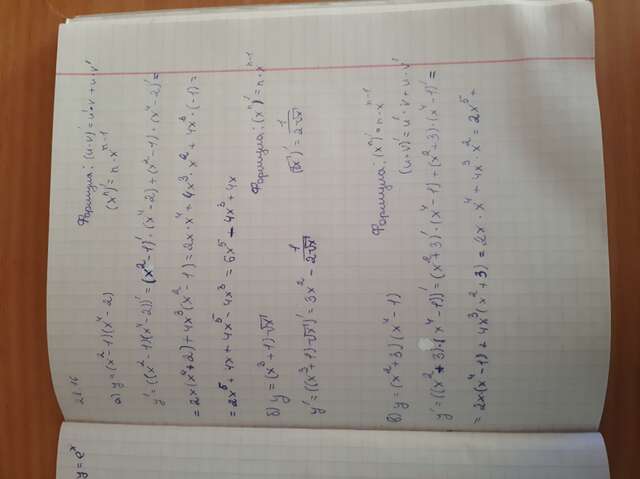 y=e^x
28.16
а) y=(x²-1)(x⁴-2)
Формула: (u·v)'=u'·v+u·v'
(xⁿ)'=n·x^(n-1)
y'=((x²-1)(x⁴-2))'=(x²-1)'·(x⁴-2)+(x²-1)·(x⁴-2)'=
=2x(x⁴+2)+4x³(x²-1)=2x·x⁴+4x³·x²+4x³·(-1)=
=2x⁵+4x+4x⁵-4x³=6x⁵-4x³+4x
б) y=(x³+1)·√x
Формула: (xⁿ)'=n·x^(n-1)
(√x)'=1/(2√x)
y'=((x³+1)·√x)'=3x²-1/(2√x)
в) y=(x²+3)(x⁴-1)
Формула: (xⁿ)'=n·x^(n-1)
(u·v)'=u'·v+u·v'
y'=((x²+3)·(x⁴-1))'=(x²+3)'·(x⁴-1)+(x²+3)·(x⁴-1)'=
=2x(x⁴-1)+4x³(x²+3)=2x·x⁴+4x³·x²=2x⁵+